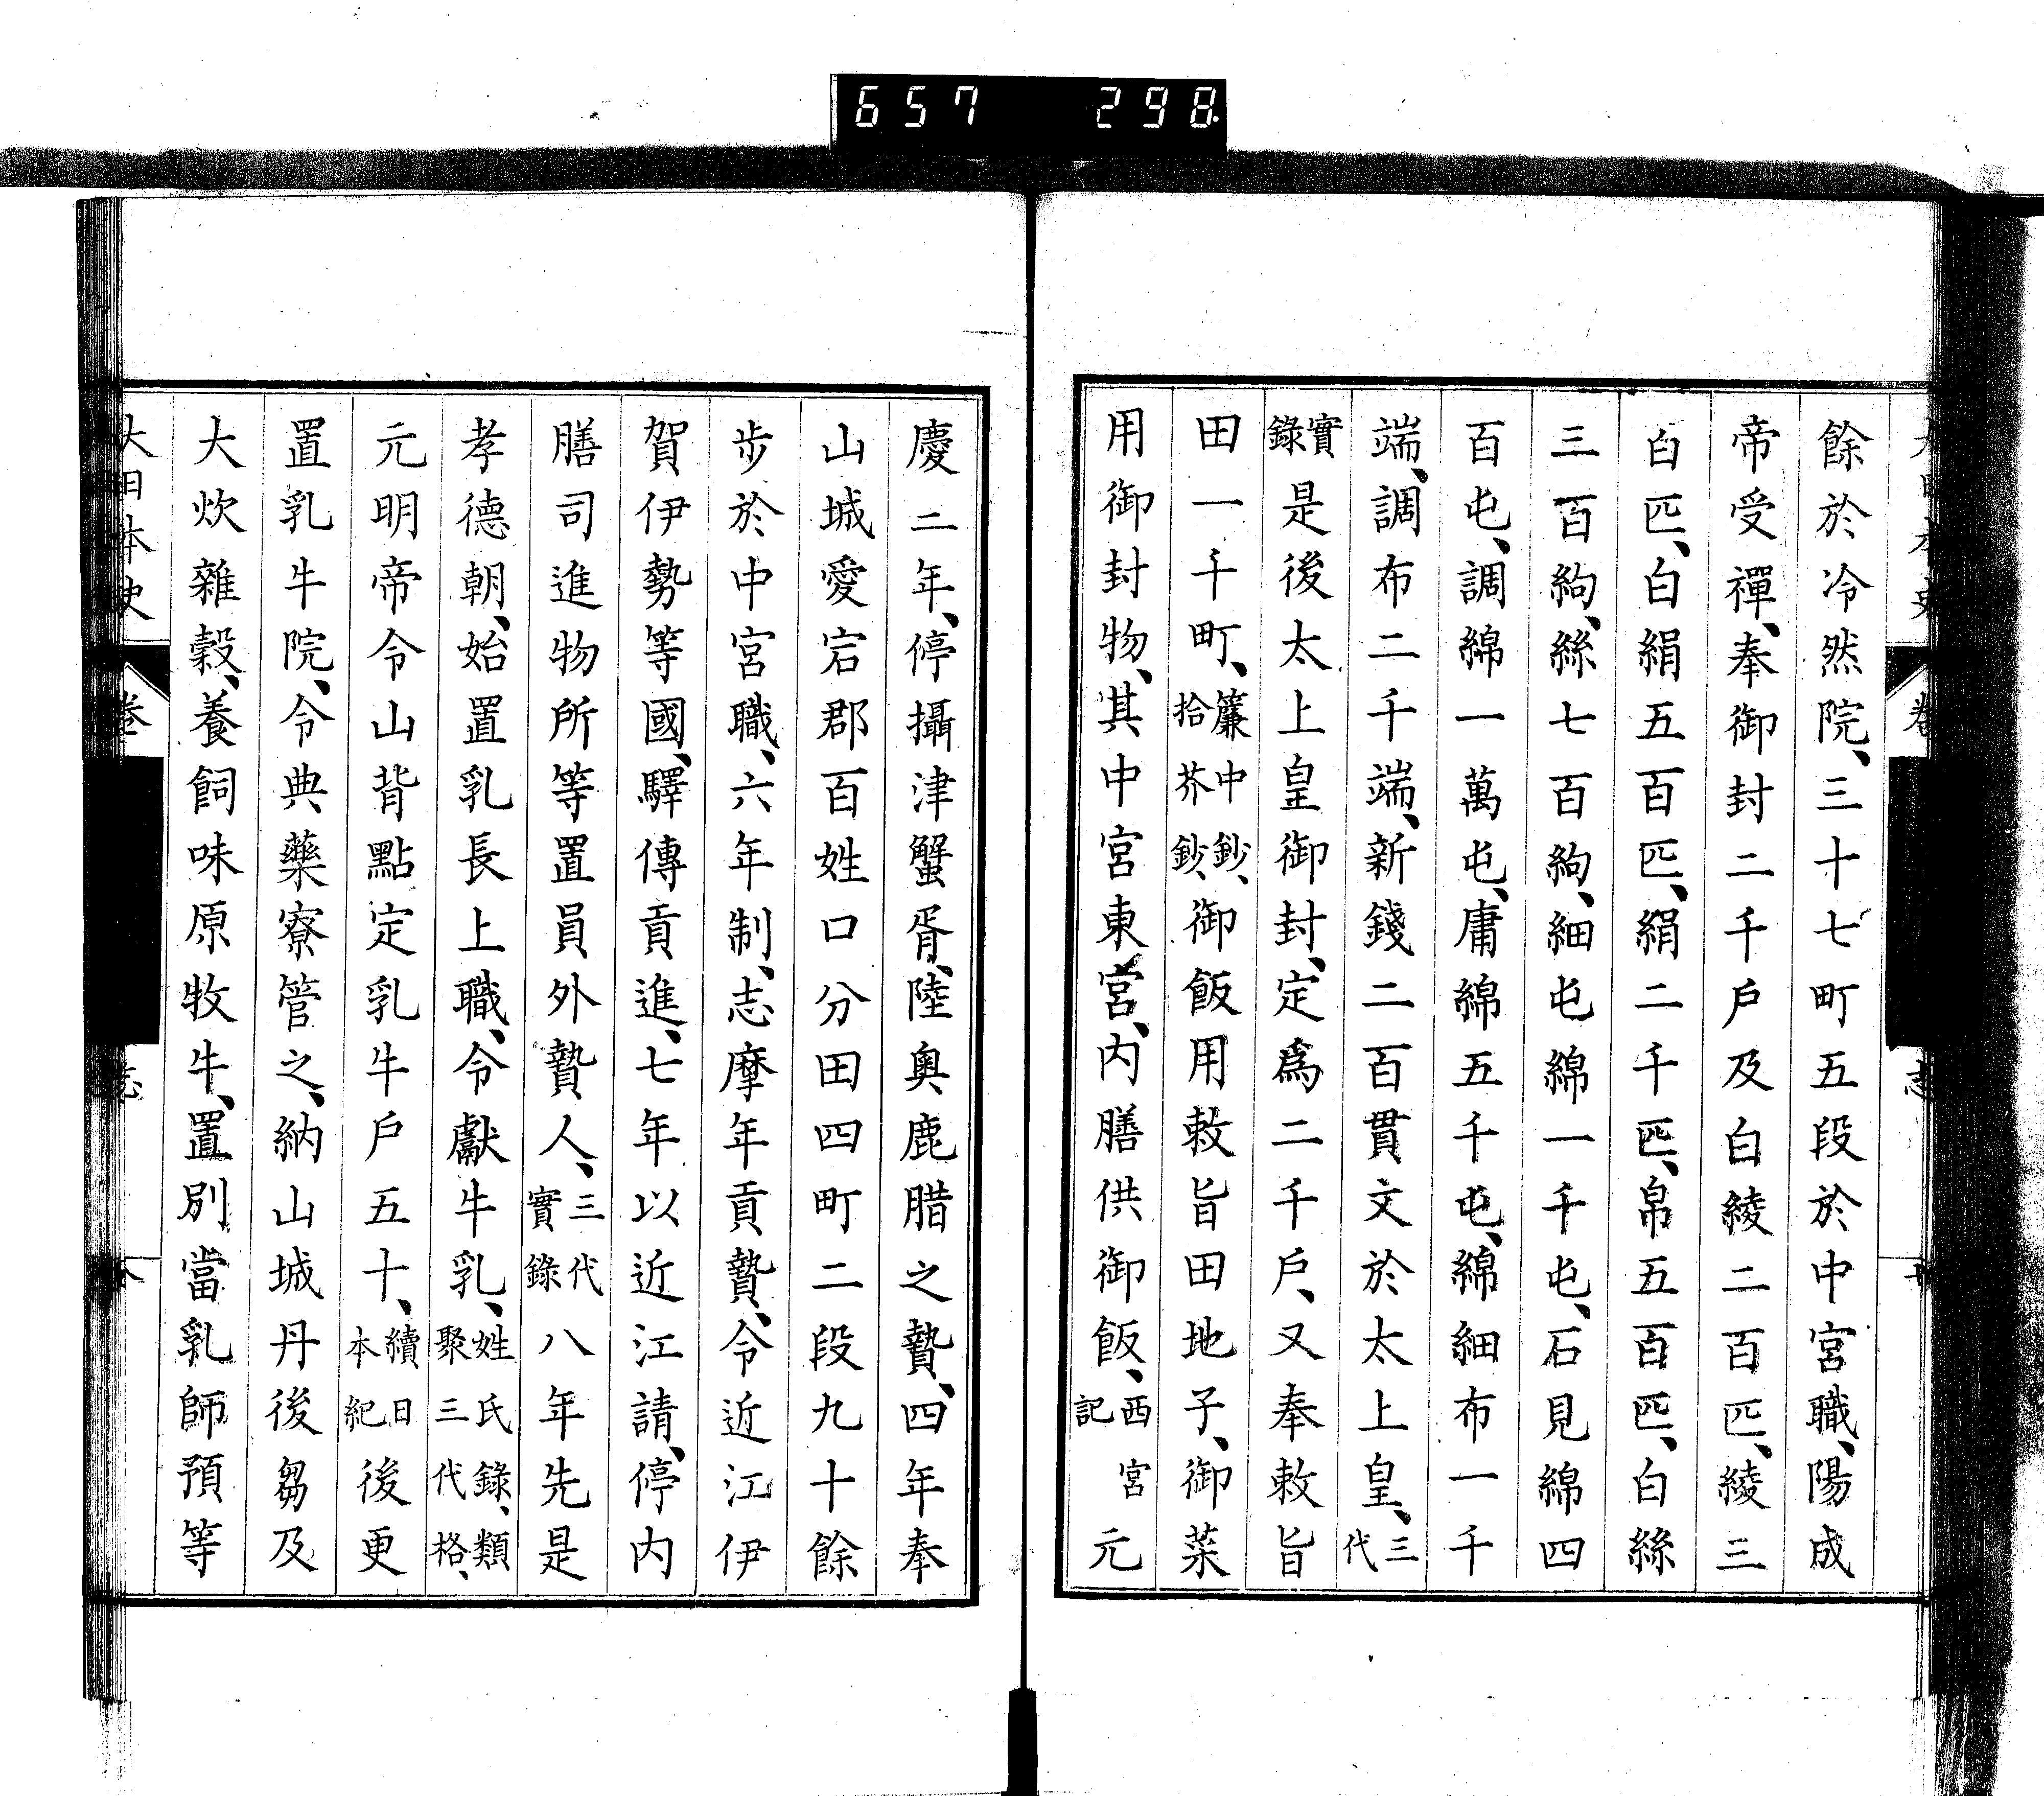 657 298
餘於冷然院、三十七町五段於中宮職、陽成
帝受禪、奉御封二千戶及白綾二百匹、綾三
百匹、白絹五百匹、絹二千匹、帛五百匹、白絲
三百絇、絲七百絇、細屯綿一千屯、石見綿四
百屯、調綿一萬屯、庸綿五千屯、綿細布一千
端、調布二千端、新錢二百貫文於太上皇、三代
實錄是後太上皇御封、定爲二千戶、又奉敕旨
田一千町、簾中鈔、拾芥鈔、御飯用敕旨田地子、御菜
用御封物、其中宮東宮、內膳供御飯、西宮記元
慶二年、停攝津蟹胥、陸奧鹿腊之贄、四年奉
山城愛宕郡百姓口分田四町二段九十餘
步於中宮職、六年制、志摩年貢贄、令近江伊
賀伊勢等國、驛傳貢進、七年以近江請、停內
膳司進物所等置員外贄人、三代實錄八年先是
孝德朝、始置乳長上職、令獻牛乳、姓氏錄、類聚三代格、
元明帝令山背點定乳牛戶五十、續日本紀後更
置乳牛院、令典藥寮管之、納山城丹後蒭及
大炊雜穀、養飼味原牧牛、置別當乳師預等
大日本史 卷 志